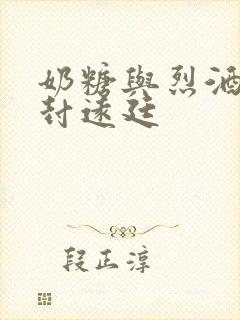 奶糖與烈酒
封遠廷
段正淳